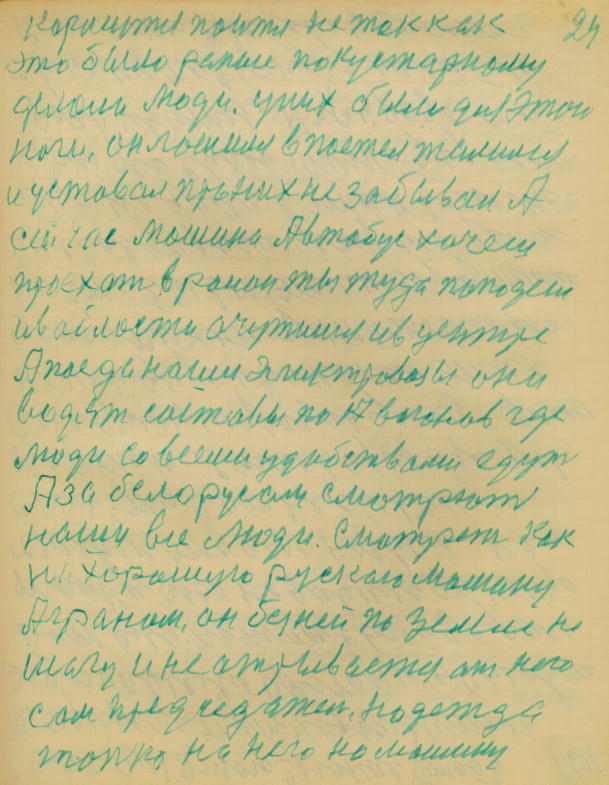 24
не так как
это было раньше по кустарному
делали люди. у них были
ноги, он
и уставал про них не забывал А
сейчас машина Автобус хочеш
проехат в раион ты туда попадеш
и в области очутишся и в центре
А поезда наши Эликтровозы они
водят саставы по 17 вагонов где
люди со всеми удобствами едут
А за белорусам смотрют
наши все люди. Смотрет как
на хорошую рускаю машину
Аграном, он без ней по земле не
шагу и не атрывается от него
сам предчедател. надежда
толко на него на машину